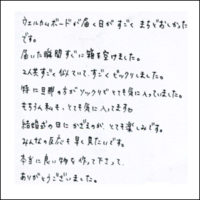 ウェルカムボードが届く日がすごくまちどおしかった
です。
届いた瞬間すぐに箱を空けました。
2人共すごく似ていて、すごくビックリしました。
特に旦那の方がソックリでとても気に入っていました。
もちろん私も、とても気に入ってます。
結婚式の日にかざるのが、とても楽しみです。
みんなの反応も早く見たいです。
本当に良い物を作って下さって、
ありがとうございました。